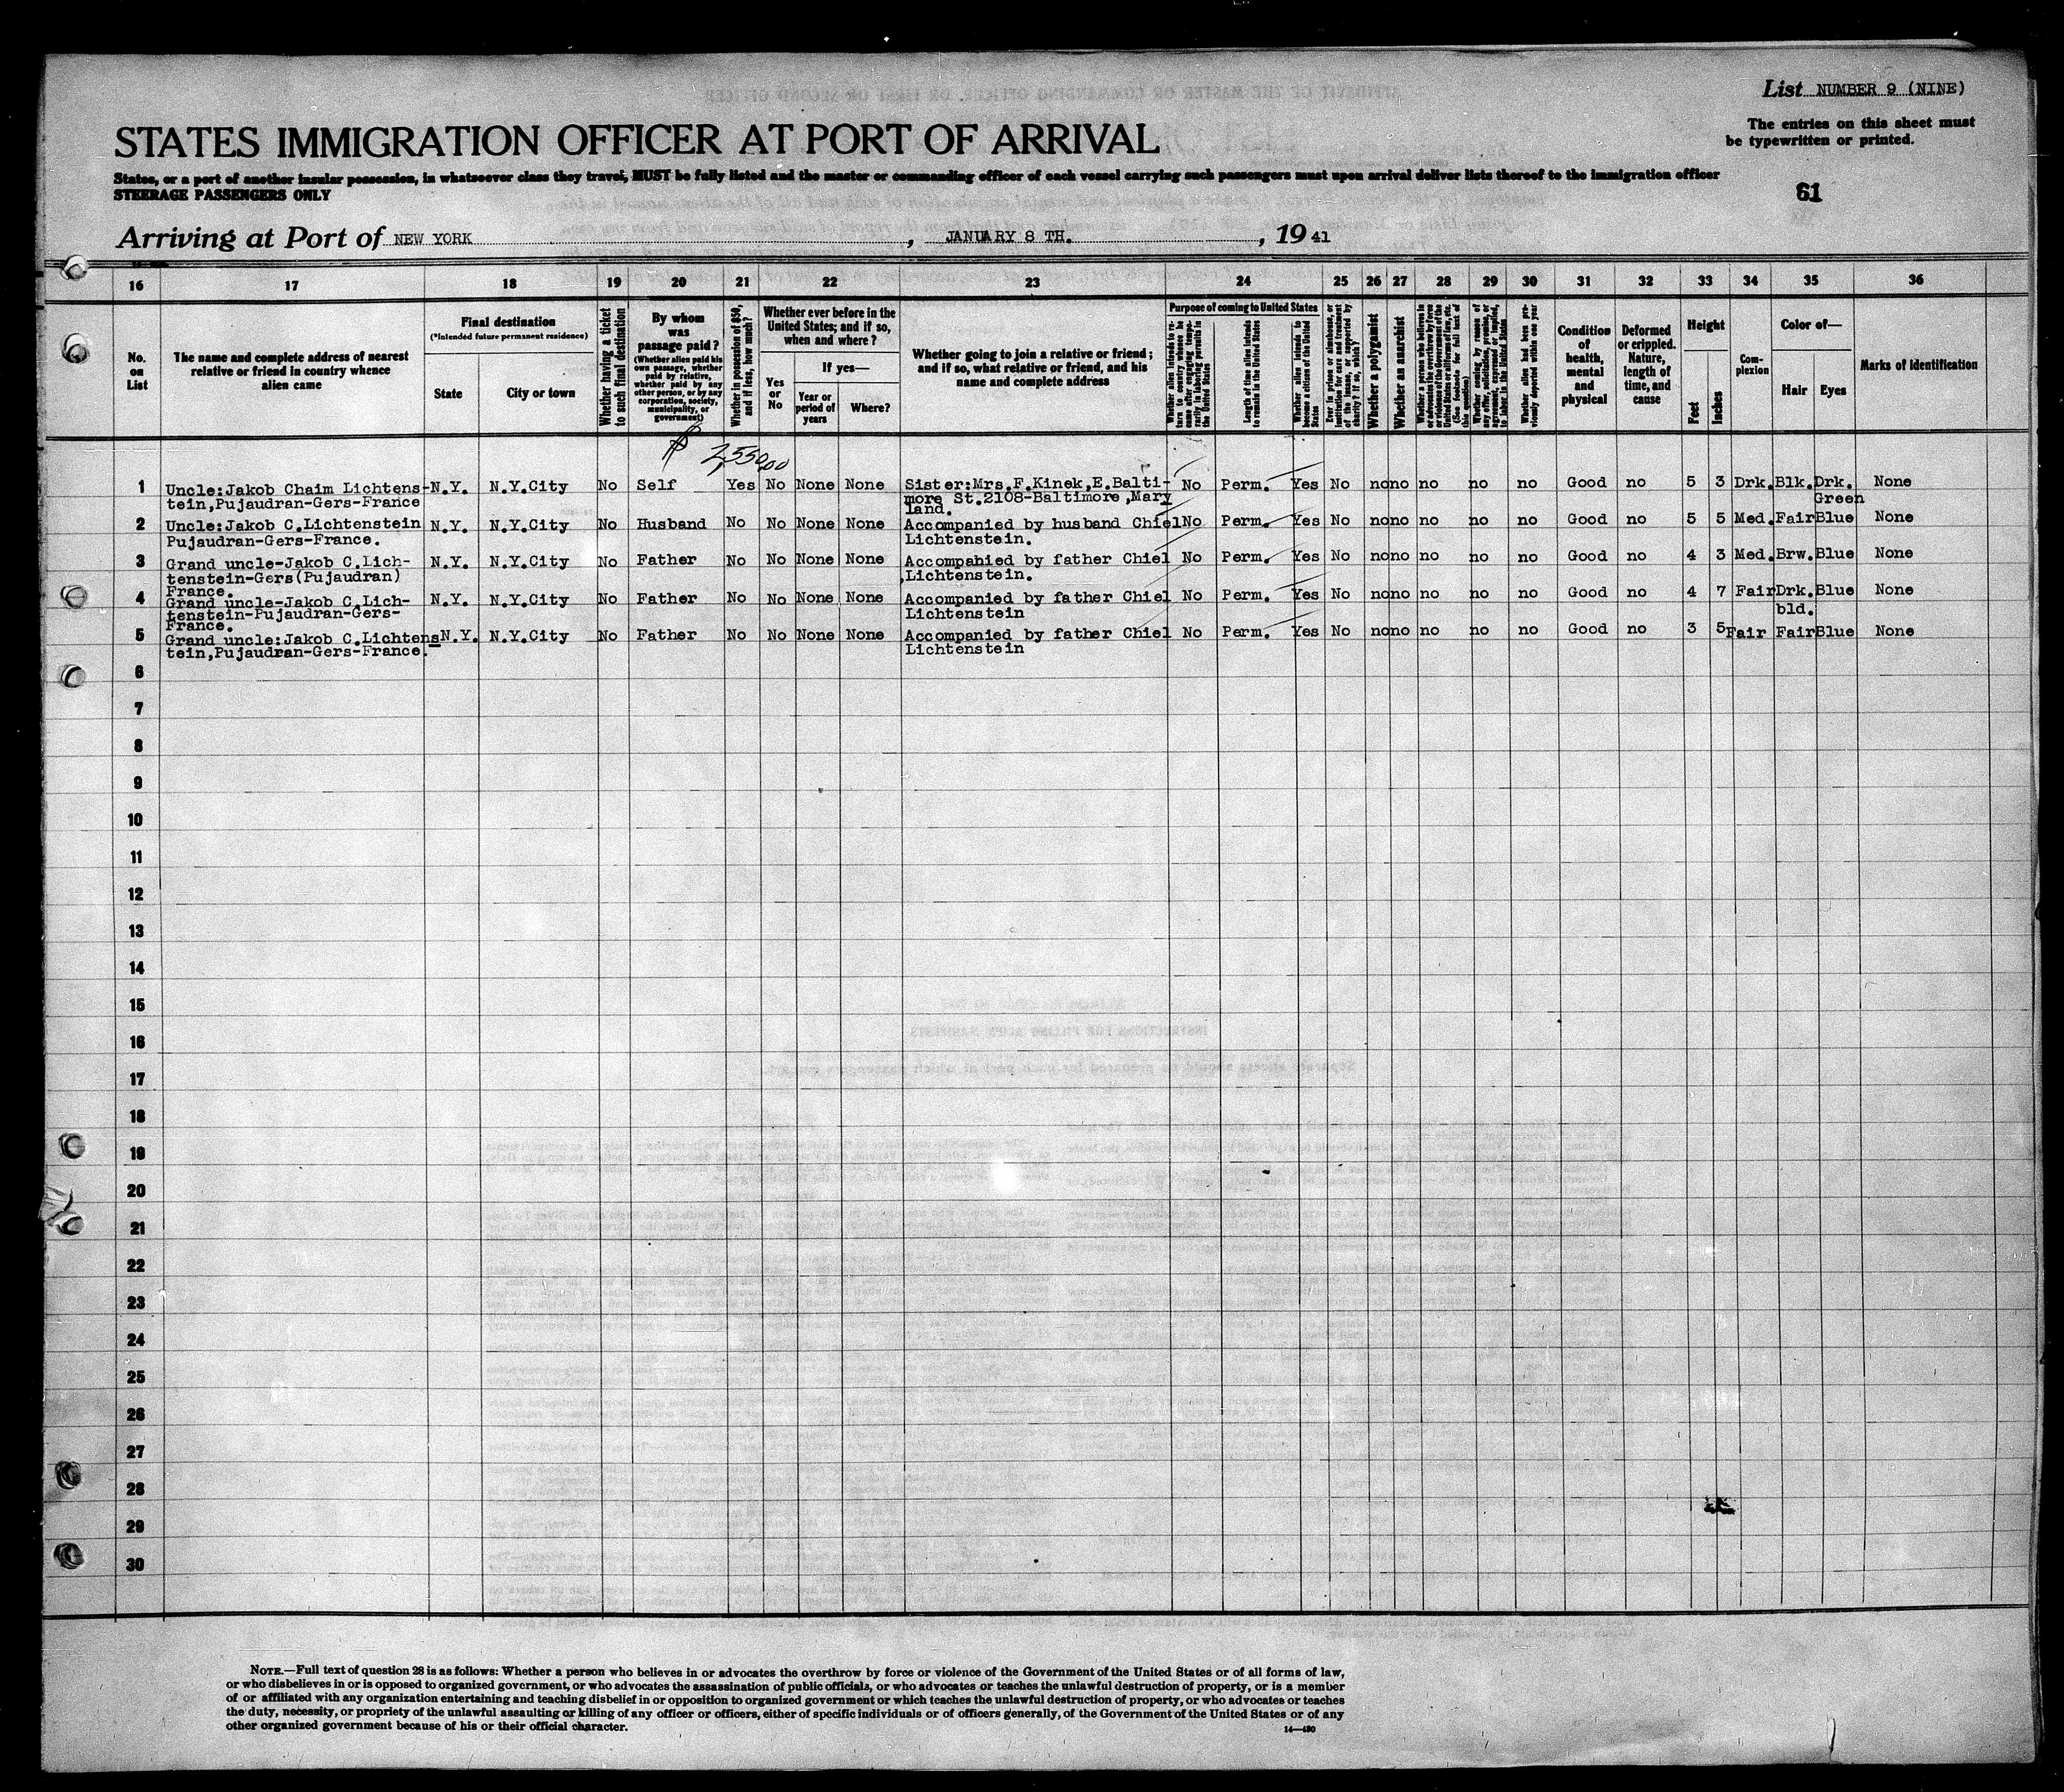 List NUMBER 9 (NINE)
STATES IMMIGRATION OFFICER AT PORT OF ARRIVAL
The entries on this sheet must
be typewritten or printed.
States, or a port of another insular possession, in whatsoever class they travel, MUST be fully listed and the master or commanding officer of each vessel carrying such passengers must upon arrival deliver lists thereof to the immigration officer
STEERAGE PASSENGERS ONLY
61
Arriving at Port of NEW YORK, JANUARY 8 TH., 1941
16 17 18 19 20 21 22 23 24 25 26 27 28 29 30 31 32 33 34 35 36
No.
on
List
The name and complete address of nearest
relative or friend in country whence
alien came
Final destination
(*Intended future permanent residence)
State
City or town
Whether having a ticket
to such final destination
By whom
was
passage paid?
(Whether alien paid his
own passage, whether
paid by relative,
whether paid by any
other person, or by any
corporation, society,
municipality, or
government)
Whether in possession of $50,
and if less, how much?
Whether ever before in the
United States; and if so,
when and where?
Yes
or
No
If yes—
Year or
period of
years
Where?
Whether going to join a relative or friend;
and if so, what relative or friend, and his
name and complete address
Purpose of coming to United States
Whether alien intends to re-
turn to country whence he
came after engaging tempo-
rarily in laboring pursuits in
the United States
Length of time alien intends
to remain in the United States
Whether alien intends to
become a citizen of the United
States
Ever in prison or almshouse, or
institution for care and treatment
of the insane, or supported by
charity? If so, which?
Whether a polygamist
Whether an anarchist
Whether a person who believes in
or advocates the overthrow by force
or violence of the Government of the
United States or all forms of law, etc.
(See footnote for full text of
this question)
Whether coming by reason of
any offer, solicitation, promise, or
agreement, expressed or implied,
to labor in the United States
Whether alien had been pre-
viously deported within one year
Condition
of
health,
mental
and
physical
Deformed
or crippled.
Nature,
length of
time, and
cause
Height
Feet
Inches
Com-
plexion
Color of—
Hair
Eyes
Marks of identification
$ 2,550.00
1 Uncle:Jakob Chaim Lichtens- N.Y. N.Y.City No Self Yes No None None Sister:Mrs.F.Kinek,E.Balti- No Perm. Yes No no no no no no Good no 5 3 Drk. Blk. Drk. None
tein,Pujaudran-Gers-France more St.2108-Baltimore,Mary Green
land.
2 Uncle:Jakob C.Lichtenstein N.Y. N.Y.City No Husband No No None None Accompanied by husband Chiel No Perm. Yes No no no no no no Good no 5 5 Med. Fair Blue None
Pujaudran-Gers-France. Lichtenstein.
3 Grand uncle-Jakob C.Lich- N.Y. N.Y.City No Father No No None None Accompahied by father Chiel No Perm. Yes No no no no no no Good no 4 3 Med. Brw. Blue None
tenstein-Gers(Pujaudran) Lichtenstein.
France.
4 Grand uncle-Jakob C.Lich- N.Y. N.Y.City No Father No No None None Accompanied by father Chiel No Perm. Yes No no no no no no Good no 4 7 Fair Drk. Blue None
tenstein-Pujaudran-Gers- Lichtenstein bld.
France.
5 Grand uncle:Jakob C.Lichtens N.Y. N.Y.City No Father No No None None Accompanied by father Chiel No Perm. Yes No no no no no no Good no 3 5 Fair Fair Blue None
tein,Pujaudran-Gers-France. Lichtenstein
6
7
8
9
10
11
12
13
14
15
16
17
18
19
20
21
22
23
24
25
26
27
28
29
30
NOTE.—Full text of question 28 is as follows: Whether a person who believes in or advocates the overthrow by force or violence of the Government of the United States or of all forms of law,
or who disbelieves in or is opposed to organized government, or who advocates the assassination of public officials, or who advocates or teaches the unlawful destruction of property, or is a member
of or affiliated with any organization entertaining and teaching disbelief in or opposition to organized government or which teaches the unlawful destruction of property, or who advocates or teaches
the duty, necessity, or propriety of the unlawful assaulting or killing of any officer or officers, either of specific individuals or of officers generally, of the Government of the United States or of any
other organized government because of his or their official character.
14—480